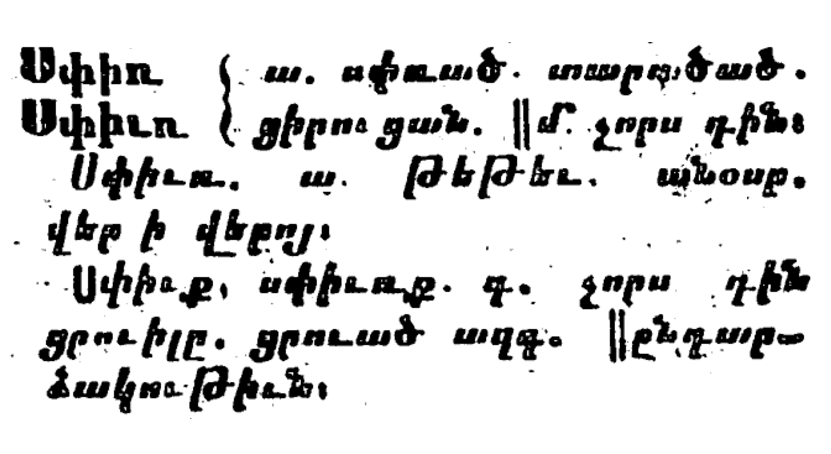 Սփիռ { ա. սփռած. տարածած.
Սփիւռ ցիրու ցան. ‖մ. չորս դին։
Սփիւռ. ա. թեթեւ. անօսր.
վեր ի վերոյ։
Սփիւռք, սփիւռք. գ. չորս դին
ցրուիլը. ցրուած ազգ. ‖ընդար-
ձակութիւն։